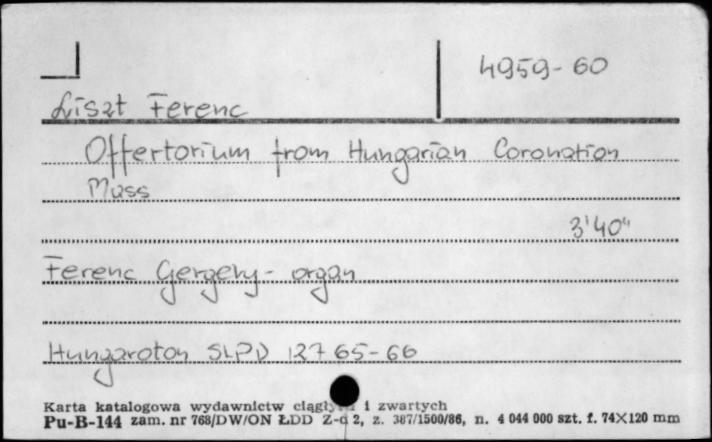 4959-60
Liszt Ferenc
Offertorium from Hungarian Coronation
Mass
3'40"
Ferenc Gergely - organ
Hungaroton SLPD 12765-66
Karta katalogowa wydawnictw i zwartych
Pu-B-144 zam. nr 768/DW/ON ŁDD Z-d 2, z. 387/1500/86, n. 4 044 000 szt. f. 74X120 mm